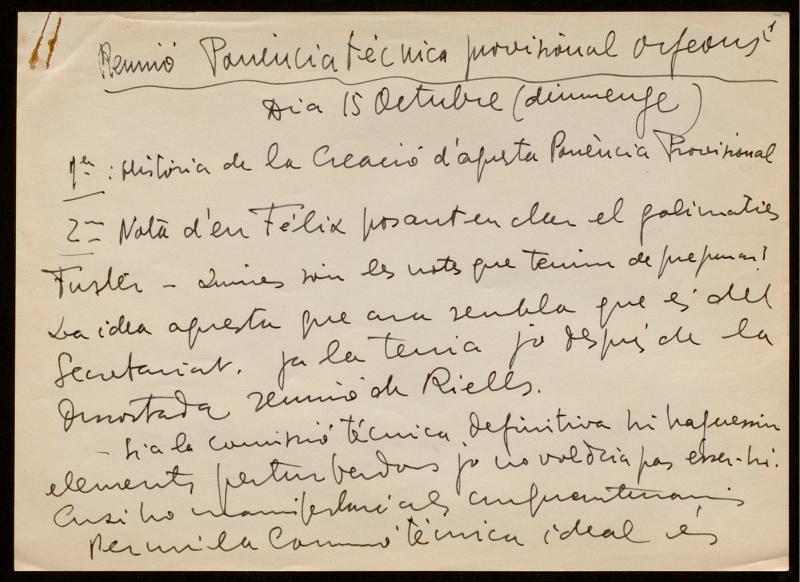 Reunió Ponència tècnica provisional orfeons 1
Dia 15 Octubre (diumenge)
1er: Història de la Creació d'aquesta Ponència Provisional
2on Nota d'en Fèlix posant en clar el galimaties
Fuster – Quines són les notes que tenim de preparar?
La idea aquesta que ara sembla que és del
Secretariat. ja la tenia jo després de la
reunió de Riells.
– Si a la comissió tècnica definitiva hi haguessin
elements perturbadors jo no voldria pas ésser-hi.
Així ho manifestaré als cinquantenaris
Per mi la Comissió tècnica ideal és